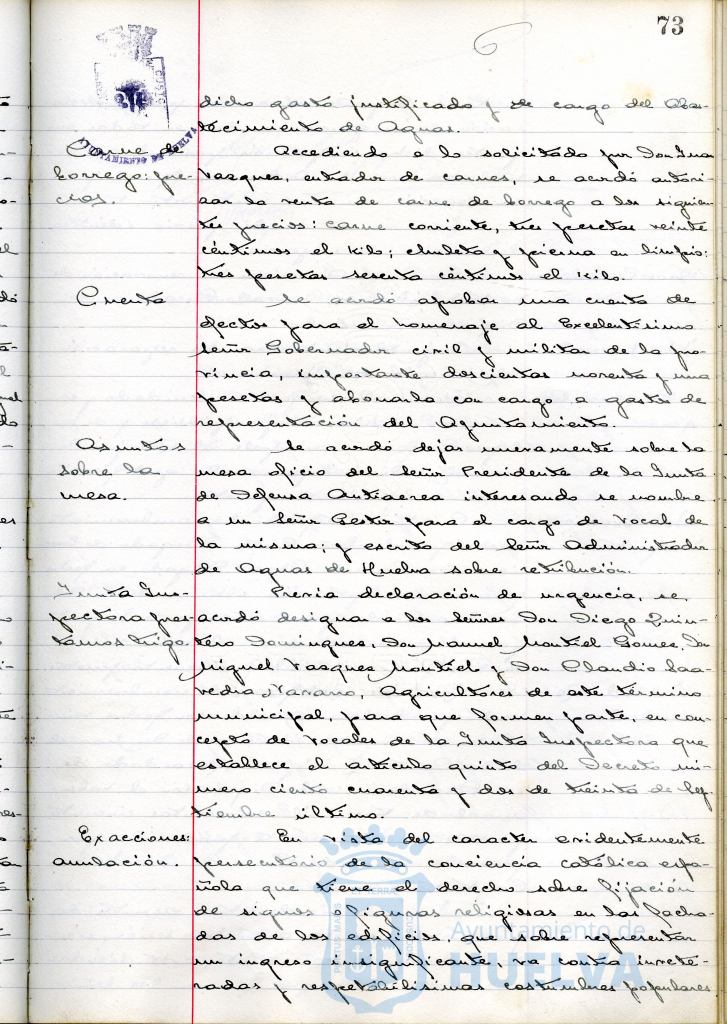 73
dicho gasto justificado y de cargo del Abas-
tecimiento de Aguas.
Carne de
borrego: pre-
cios.
Accediendo a lo solicitado por Don Juan
Vasques, entrador de carnes, se acordó autori-
sar la venta de carne de borrego a los siguien-
tes precios: carne corriente, tres pesetas veinte
céntimos el kilo; chuleta y pierna en limpio:
tres pesetas sesenta céntimos el kilo.
Cuenta
Se acordó aprobar una cuenta de
efectos para el homenaje al Excelentísimo
Señor Gobernador civil y militar de la pro-
vincia, importante doscientas noventa y una
pesetas y abonarla con cargo a gastos de
representación del Ayuntamiento.
Asuntos
sobre la
mesa.
Se acordó dejar nuevamente sobre la
mesa oficio del Señor Presidente de la Junta
de Defensa Antiaerea interesando se nombre
a un Señor Gestor para el cargo de Vocal de
la misma; y escrito del Señor Administrador
de Aguas de Huelva sobre retribución.
Junta Ins-
pectora pres-
tamos trigo.
Previa declaración de urgencia, se
acordó designar a los Señores Don Diego Quin-
tero Domingues, Don Manuel Montiel Gomes, Don
Miguel Vasques Montiel y Don Claudio Saa-
vedra Navarro, Agricultores de este término
municipal, para que formen parte, en con-
cepto de Vocales de la Junta Inspectora que
establece el artículo quinto del Decreto nú-
mero ciento cuarenta y dos de treinta de Sep-
tiembre último.
Exacciones:
anulación.
En vista del caracter evidentemente
persecutorio de la conciencia católica espa-
ñola que tiene el derecho sobre fijación
de signos o figuras religiosas en las facha-
das de los edificios, que sobre representar
un ingreso insignificante, va contra invete-
radas y respetabilisimas costumbres populares
AYUNTAMIENTO DE HUELVA
Ayuntamiento de
HUELVA